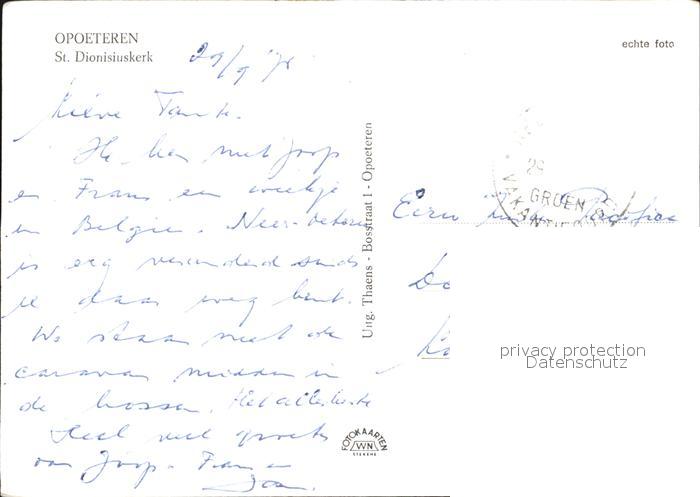 OPOETEREN
St. Dionisiuskerk
echte foto
29/9 '71
Lieve Tante.
Ik ben met Joop
en Frans een weekje
in België. Neeroeteren
is erg veranderd sinds
je daar weg bent.
We staan met de
caravan midden in
de bossen. Het allerbeste
Heel veel groets
van Joop - Frans en
Uitg. Thaens - Bosstraat 1 - Opoeteren
GROEN
Eerw
FOTOKAARTEN
VVN
STEKENE
privacy protection
Datenschutz